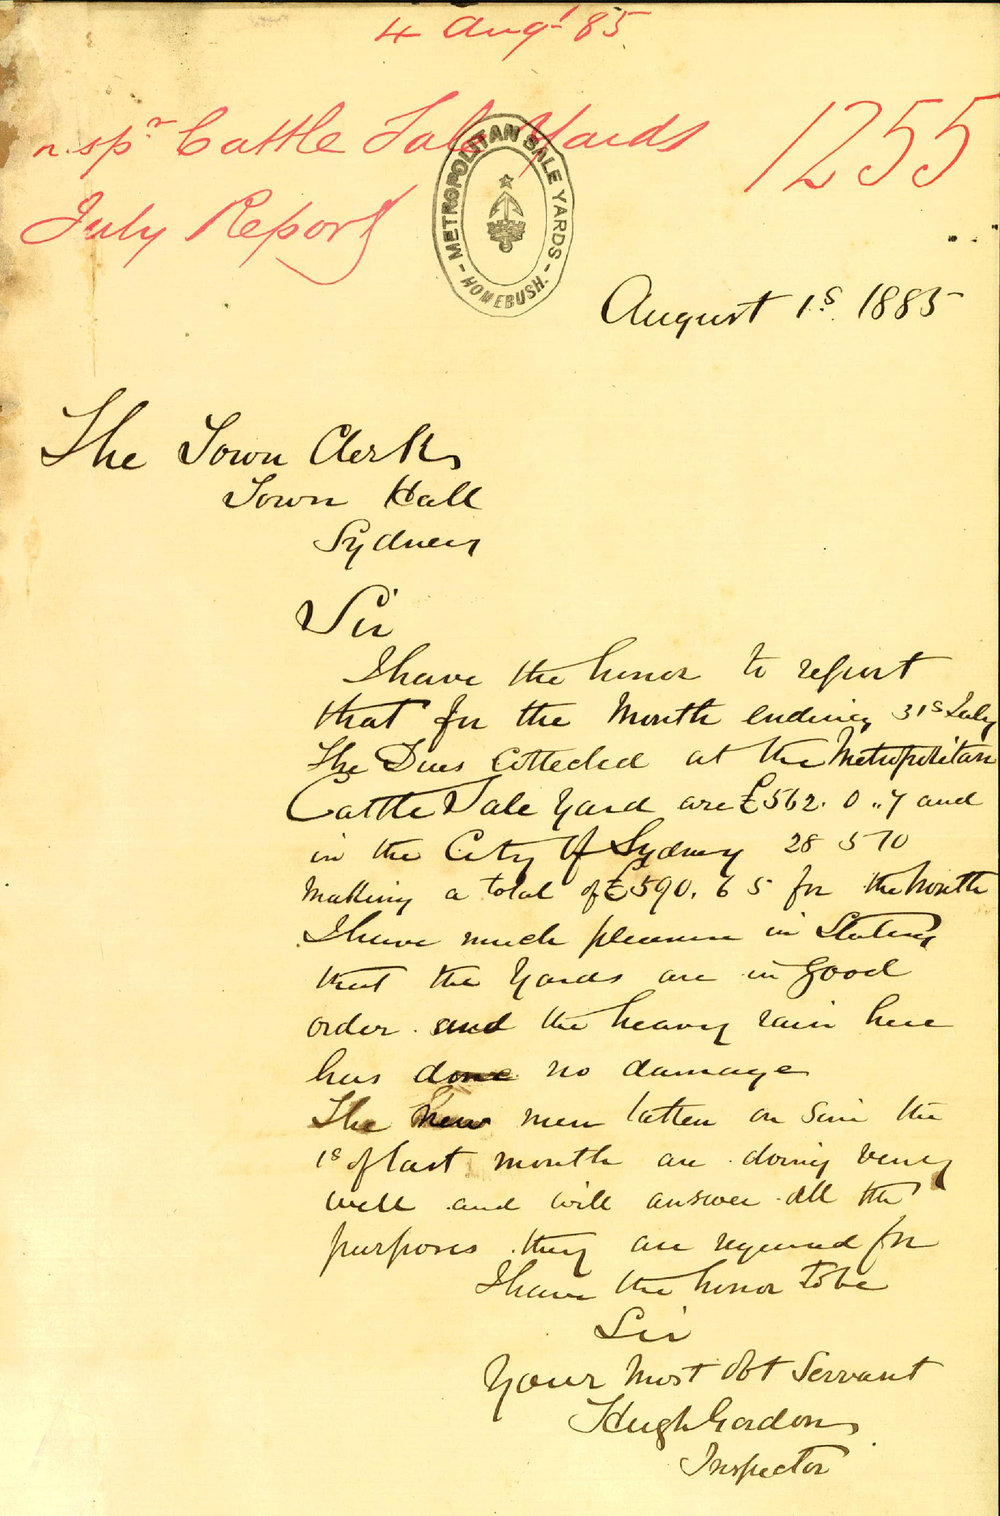 4 Augt 85
nspr Cattle Sale Yards
1255
July Report
METROPOLITAN SALE YARDS - HOMEBUSH. -
August 1s. 1885
The Town Clerk
Town Hall
Sydney
Sir
I have the honor to report
that for the Month ending 31s July
The Dues Collected at the Metropolitan
Cattle Sale Yard are £562. 0 .. 7 and
in the City of Sydney 28 5 10
Making a total of £590. 6 5 for the Month
I have much pleasure in Stating
that the Yards are in good
order and the heavy rain here
has done no damage
The new men taken on Sinc the
1s of last month are doing very
well and will answer all the
purposes they are required for
I have the honor to be
Sir
Your Most Obt Servant
Hugh Gordon
Inspector